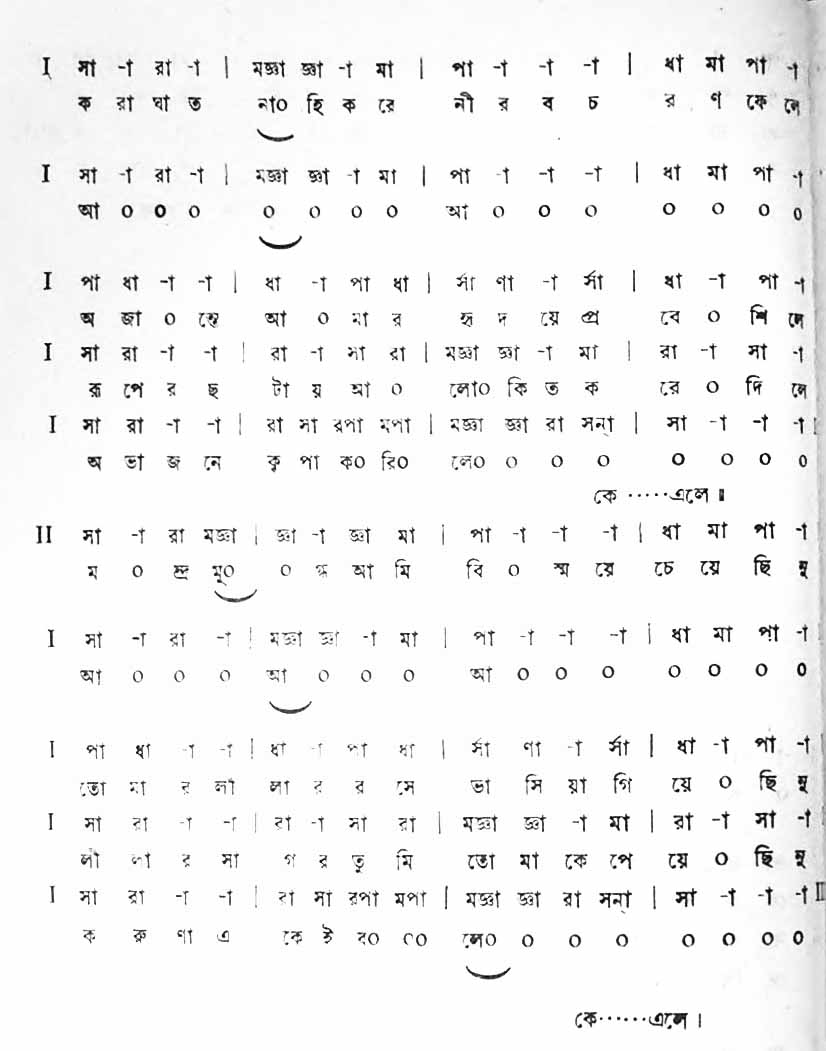 I সা -া রা -া | মজ্ঞা জ্ঞা -া মা | পা -া -া -া | ধা মা পা -া
ক রা ঘা ত না০ হি ক রে নী র ব চ র ণ ফে লে
I সা -া রা -া | মজ্ঞা জ্ঞা -া মা | পা -া -া -া | ধা মা পা -া
আ ০ ০ ০ ০ ০ ০ ০ আ ০ ০ ০ ০ ০ ০ ০
I পা ধা -া -া | ধা -া পা ধা | র্সা ণা -া র্সা | ধা -া পা -া
অ জা ০ ন্তে আ ০ মার হৃ দ য়ে প্র বে ০ শি লে
I সা রা -া -া | রা -া সা রা | মজ্ঞা জ্ঞা -া মা | রা -া সা -া
রূ পে র ছ টা য় আ ০ লো০ কি ত ক রে ০ দি লে
I সা রা -া -া | রা সা রপা মপা | মজ্ঞা জ্ঞা রা সন্া | সা -া -া -া |
অ ভা জ নে কৃ পা ক০ রি০ লে০ ০ ০ ০ ০ ০ ০ ০
কে ·····এলে॥
II সা -া রা মজ্ঞা | জ্ঞা -া জ্ঞা মা | পা -া -া -া | ধা মা পা -া |
ম ০ ন্দ্র মু০ ০ গ্ধ আ মি বি ০ স্ম য়ে চে য়ে ছি নু
I সা -া রা -া | মজ্ঞা জ্ঞা -া মা | পা -া -া -া | ধা মা পা -া |
আ ০ ০ ০ আ ০ ০ ০ আ ০ ০ ০ ০ ০ ০ ০
I পা ধা -া -া | ধা -া পা ধা | র্সা ণা -া র্সা | ধা -া পা -া |
তো মা র লী লা র র সে ভা সি য়া গি য়ে ০ ছি নু
I সা রা -া -া | রা -া সা রা | মজ্ঞা জ্ঞা -া মা | রা -া সা -া |
লী লা র সা গ র তু মি তো মা কে পে য়ে ০ ছি নু
I সা রা -া -া | রা সা রপা মপা | মজ্ঞা জ্ঞা রা সন্া | সা -া -া -া II
ক রু ণা এ কে ই ব০ ০ লে০ ০ ০ ০ ০ ০ ০ ০
কে······এলে।